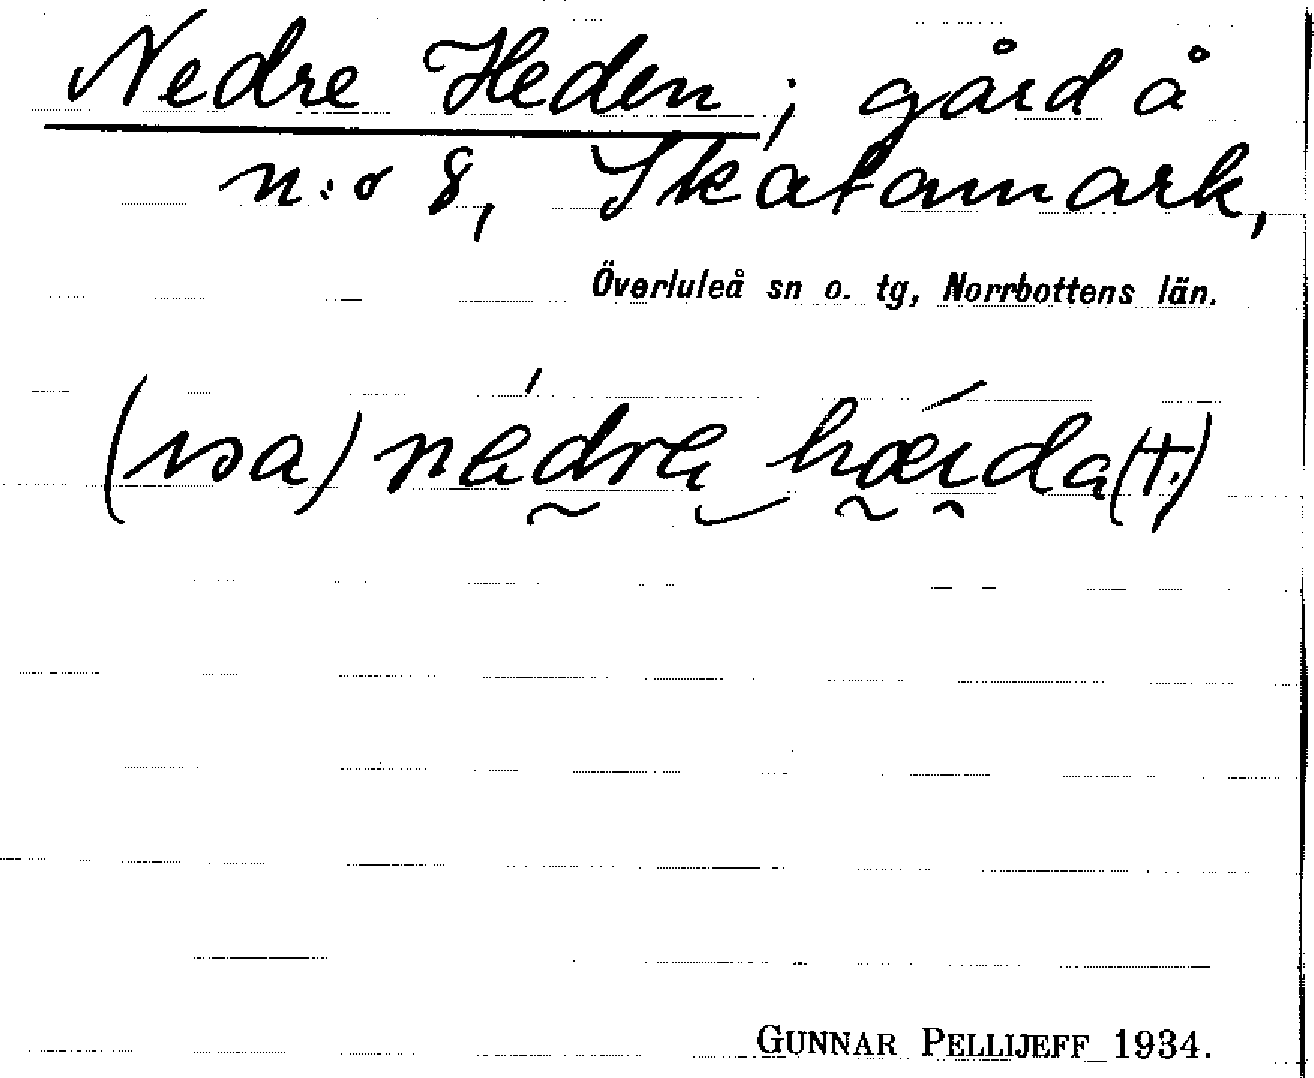 Nedre Heden; gård å
n:o 8, Skatamark,
Överluleå sn o. tg, Norrbottens län.
nedre hæida (t.)
GUNNAR PELLIJEFF 1934.